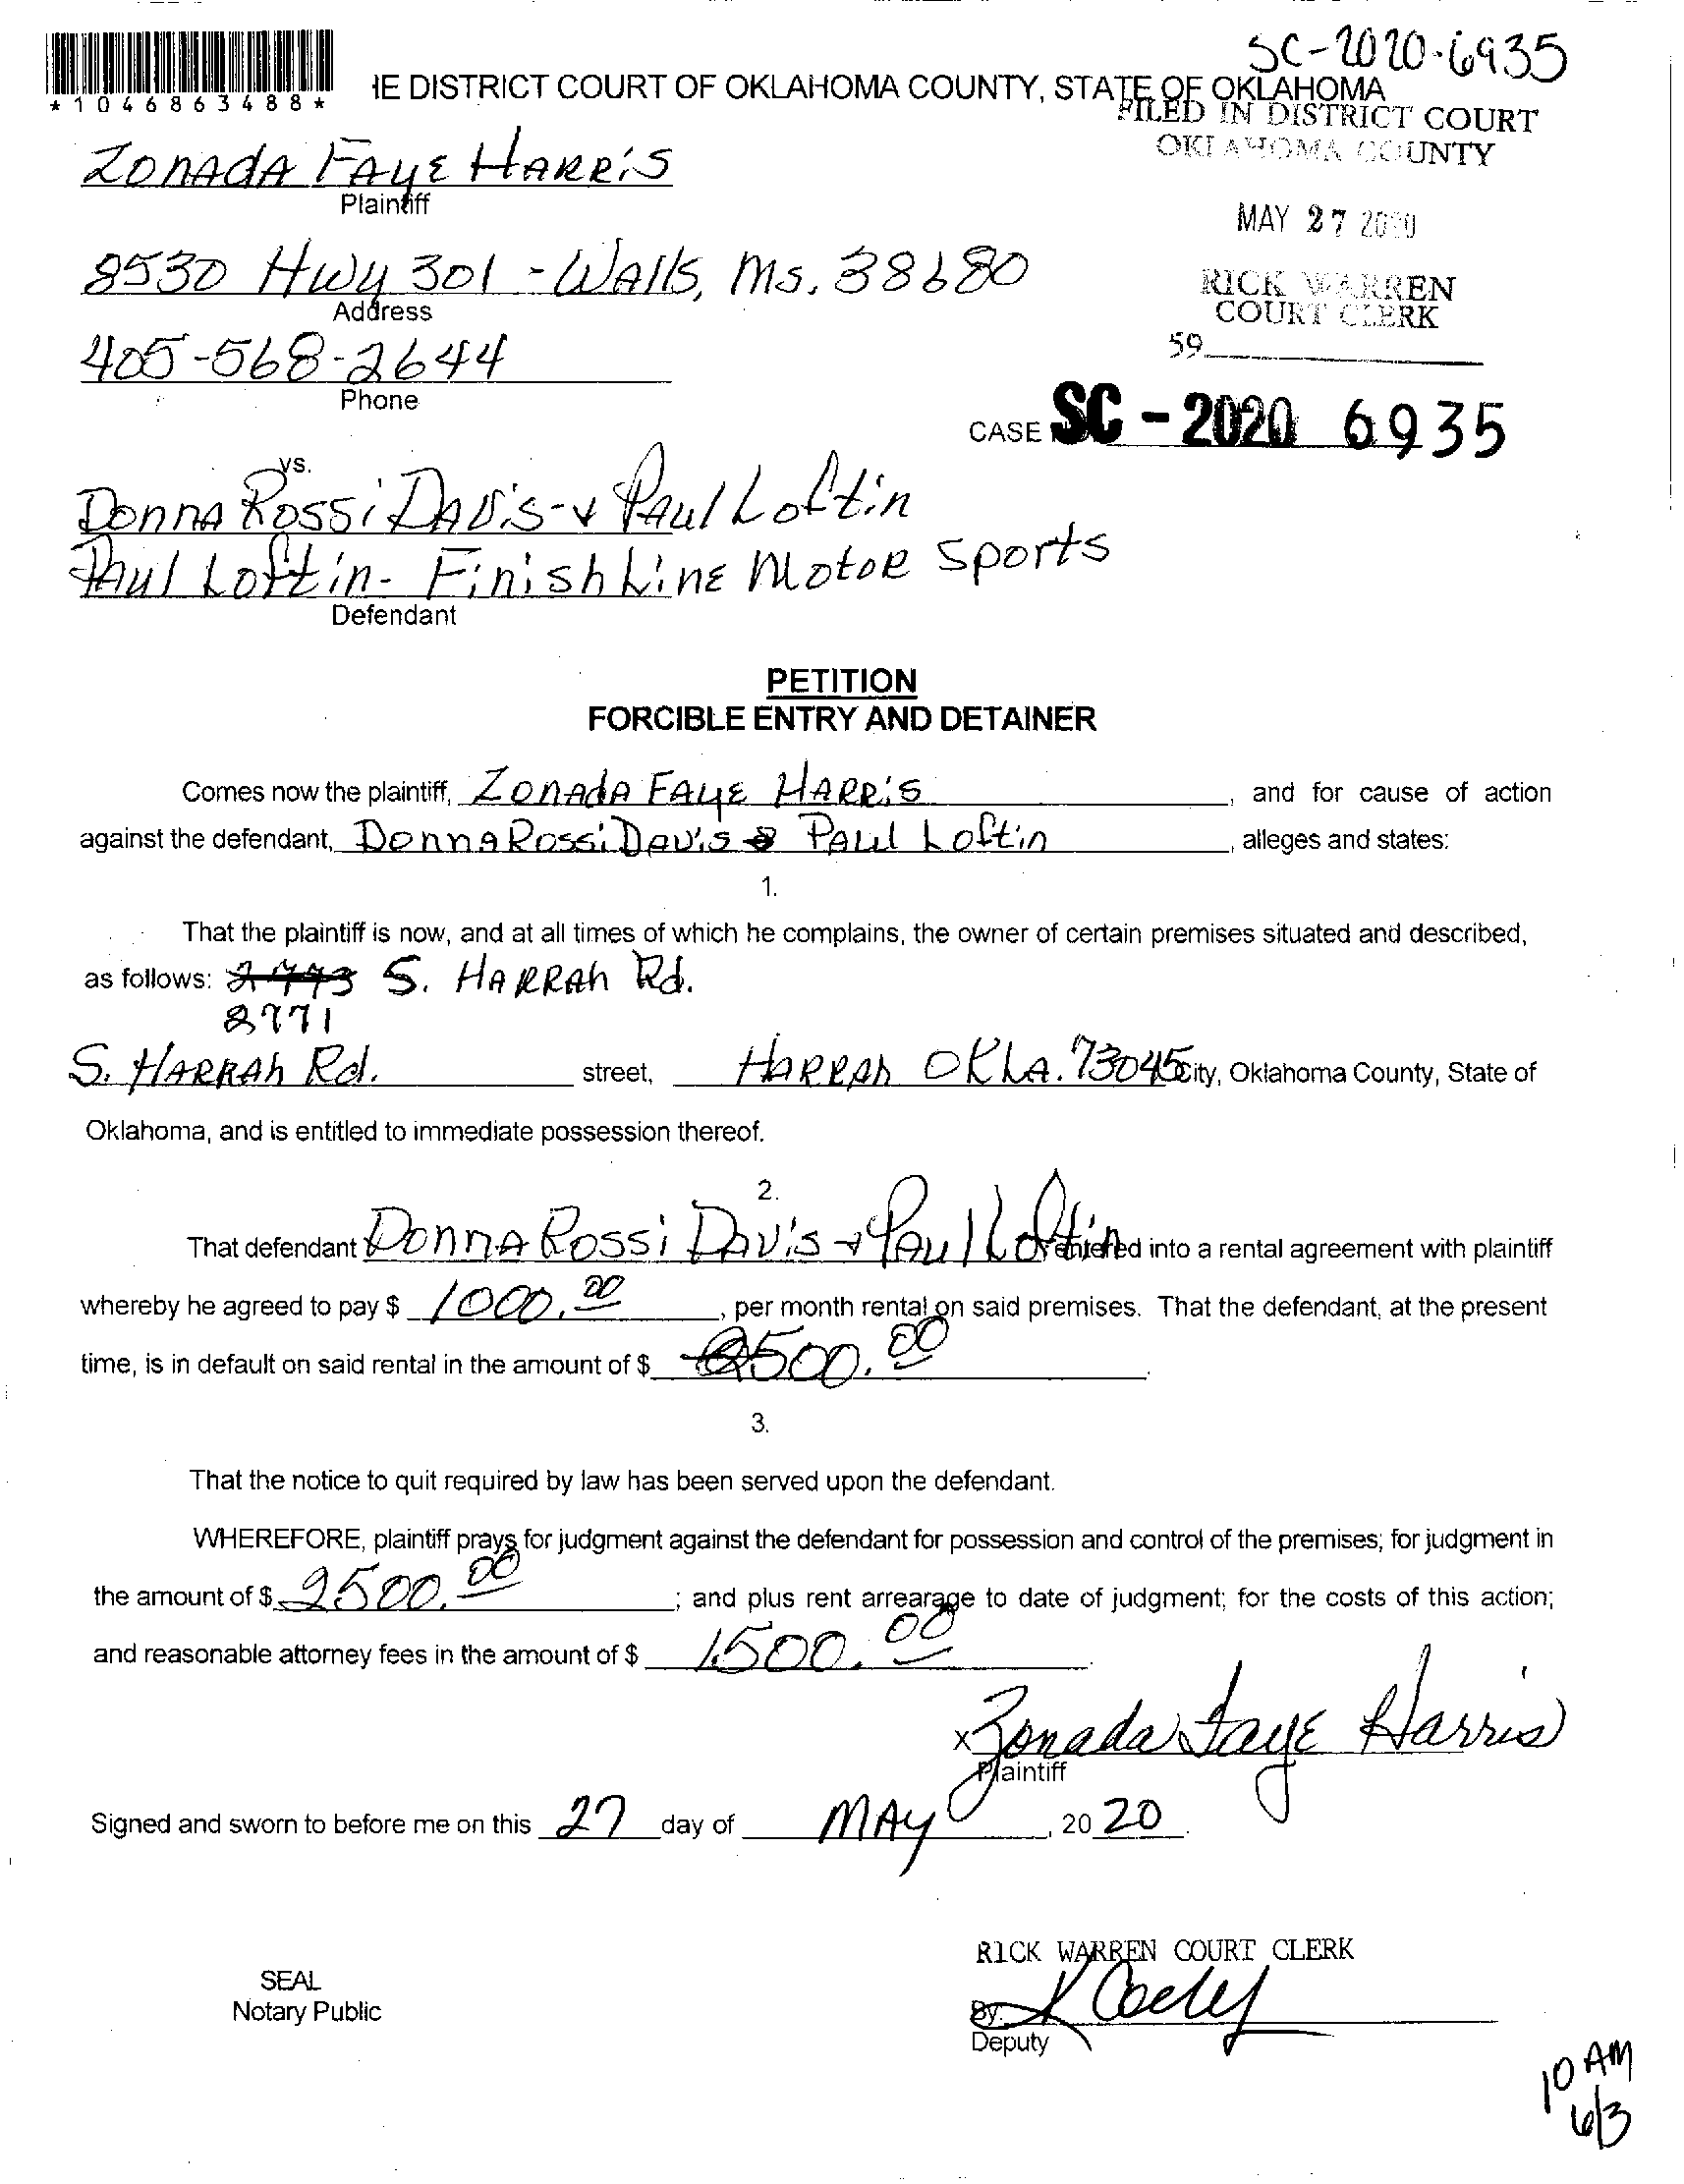 SC-2020-6935
*1046863488*
IE DISTRICT COURT OF OKLAHOMA COUNTY, STATE OF OKLAHOMA
FILED IN DISTRICT COURT
OKLAHOMA COUNTY
ZONADA FAYE HARRIS
Plaintiff
MAY 27 2020
8530 Hwy 301 - WALLS, Ms. 38680
Address
RICK WARREN
COURT CLERK
405-568-2644
Phone
59
CASE SC - 2020 6935
vs.
DONNA ROSSI DAVIS - & PAUL LOFTIN
PAUL LOFTIN - FINISH LINE MOTOR SPORTS
Defendant
PETITION
FORCIBLE ENTRY AND DETAINER
Comes now the plaintiff, ZONADA FAYE HARRIS, and for cause of action
against the defendant, DONNA ROSSI DAVIS & PAUL LOFTIN, alleges and states:
1.
That the plaintiff is now, and at all times of which he complains, the owner of certain premises situated and described,
as follows: S. HARRAH Rd.
2771
S. HARRAH Rd. street, HARRAH OKLA. 73045 City, Oklahoma County, State of
Oklahoma, and is entitled to immediate possession thereof.
2.
That defendant DONNA ROSSI DAVIS & PAUL LOFTIN entered into a rental agreement with plaintiff
whereby he agreed to pay $ 1000.00, per month rental on said premises. That the defendant, at the present
time, is in default on said rental in the amount of $ 2500.00.
3.
That the notice to quit required by law has been served upon the defendant.
WHEREFORE, plaintiff prays for judgment against the defendant for possession and control of the premises; for judgment in
the amount of $ 2500.00; and plus rent arrearage to date of judgment; for the costs of this action;
and reasonable attorney fees in the amount of $ 1500.00.
x Zonada Faye Harris
Plaintiff
Signed and sworn to before me on this 27 day of MAY, 20 20.
RICK WARREN COURT CLERK
SEAL
Notary Public
By: K Coely
Deputy
10 AM
6/3